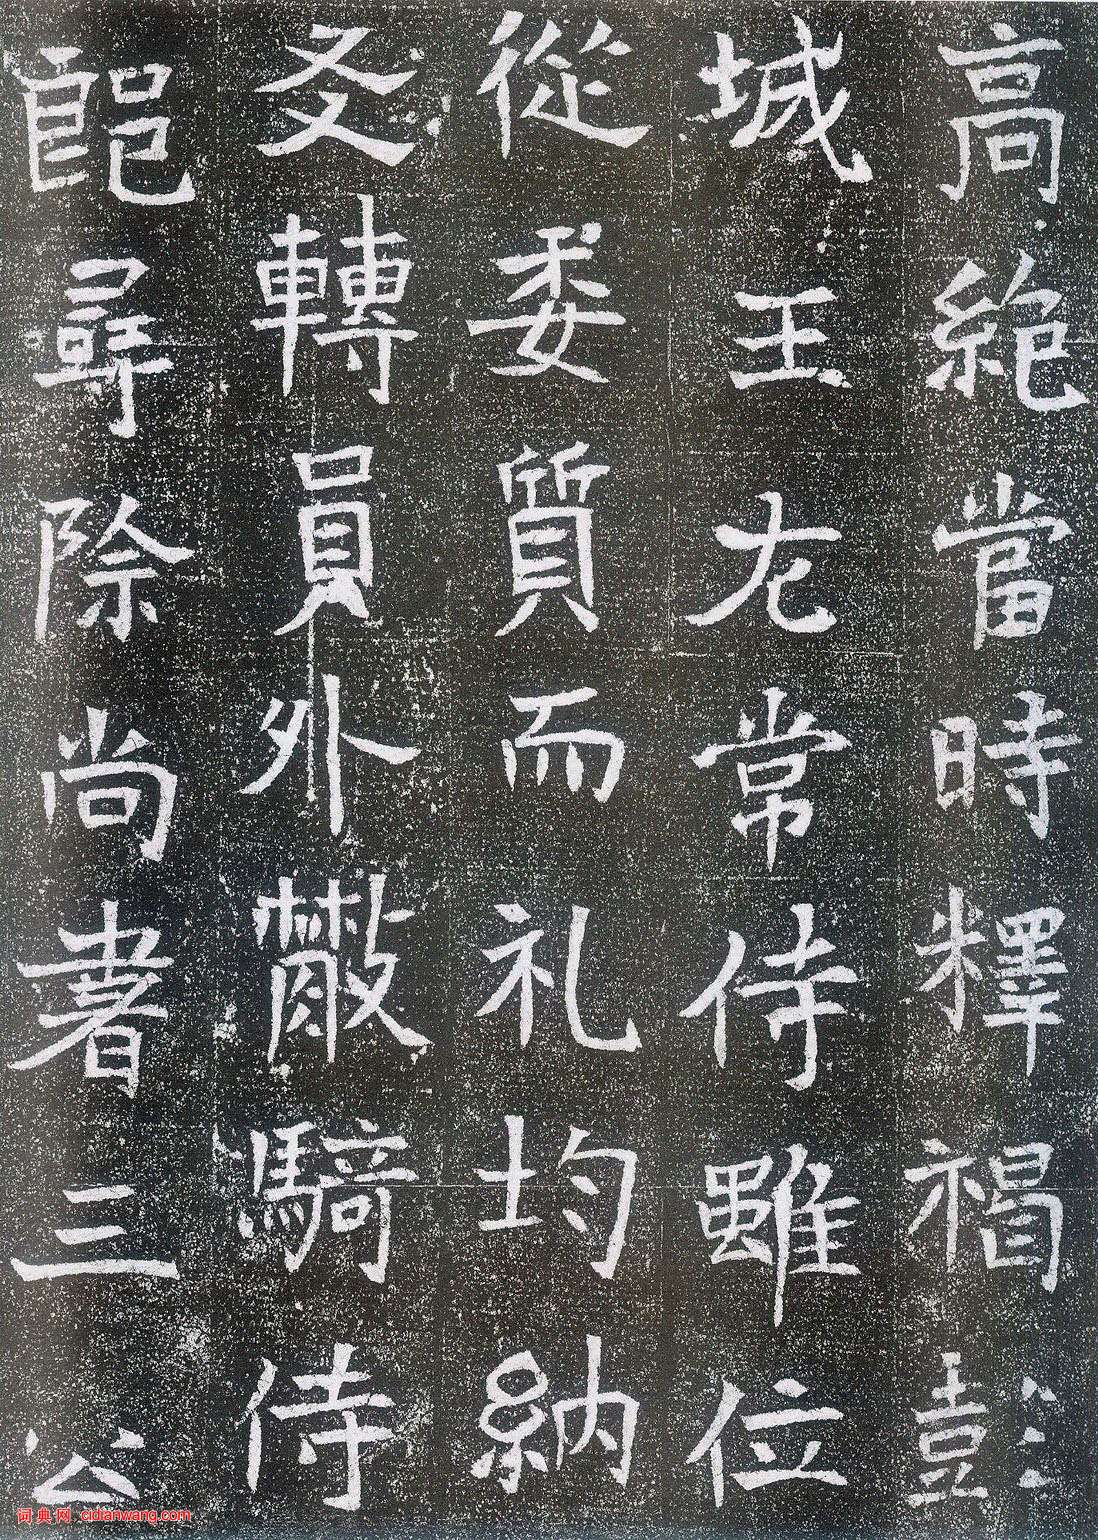 高絶當時釋褐彭
城王尤常侍雖位
從委質而礼均納
叐轉員外散騎侍
郎尋除尚書三公
词典网 cidianwang.com